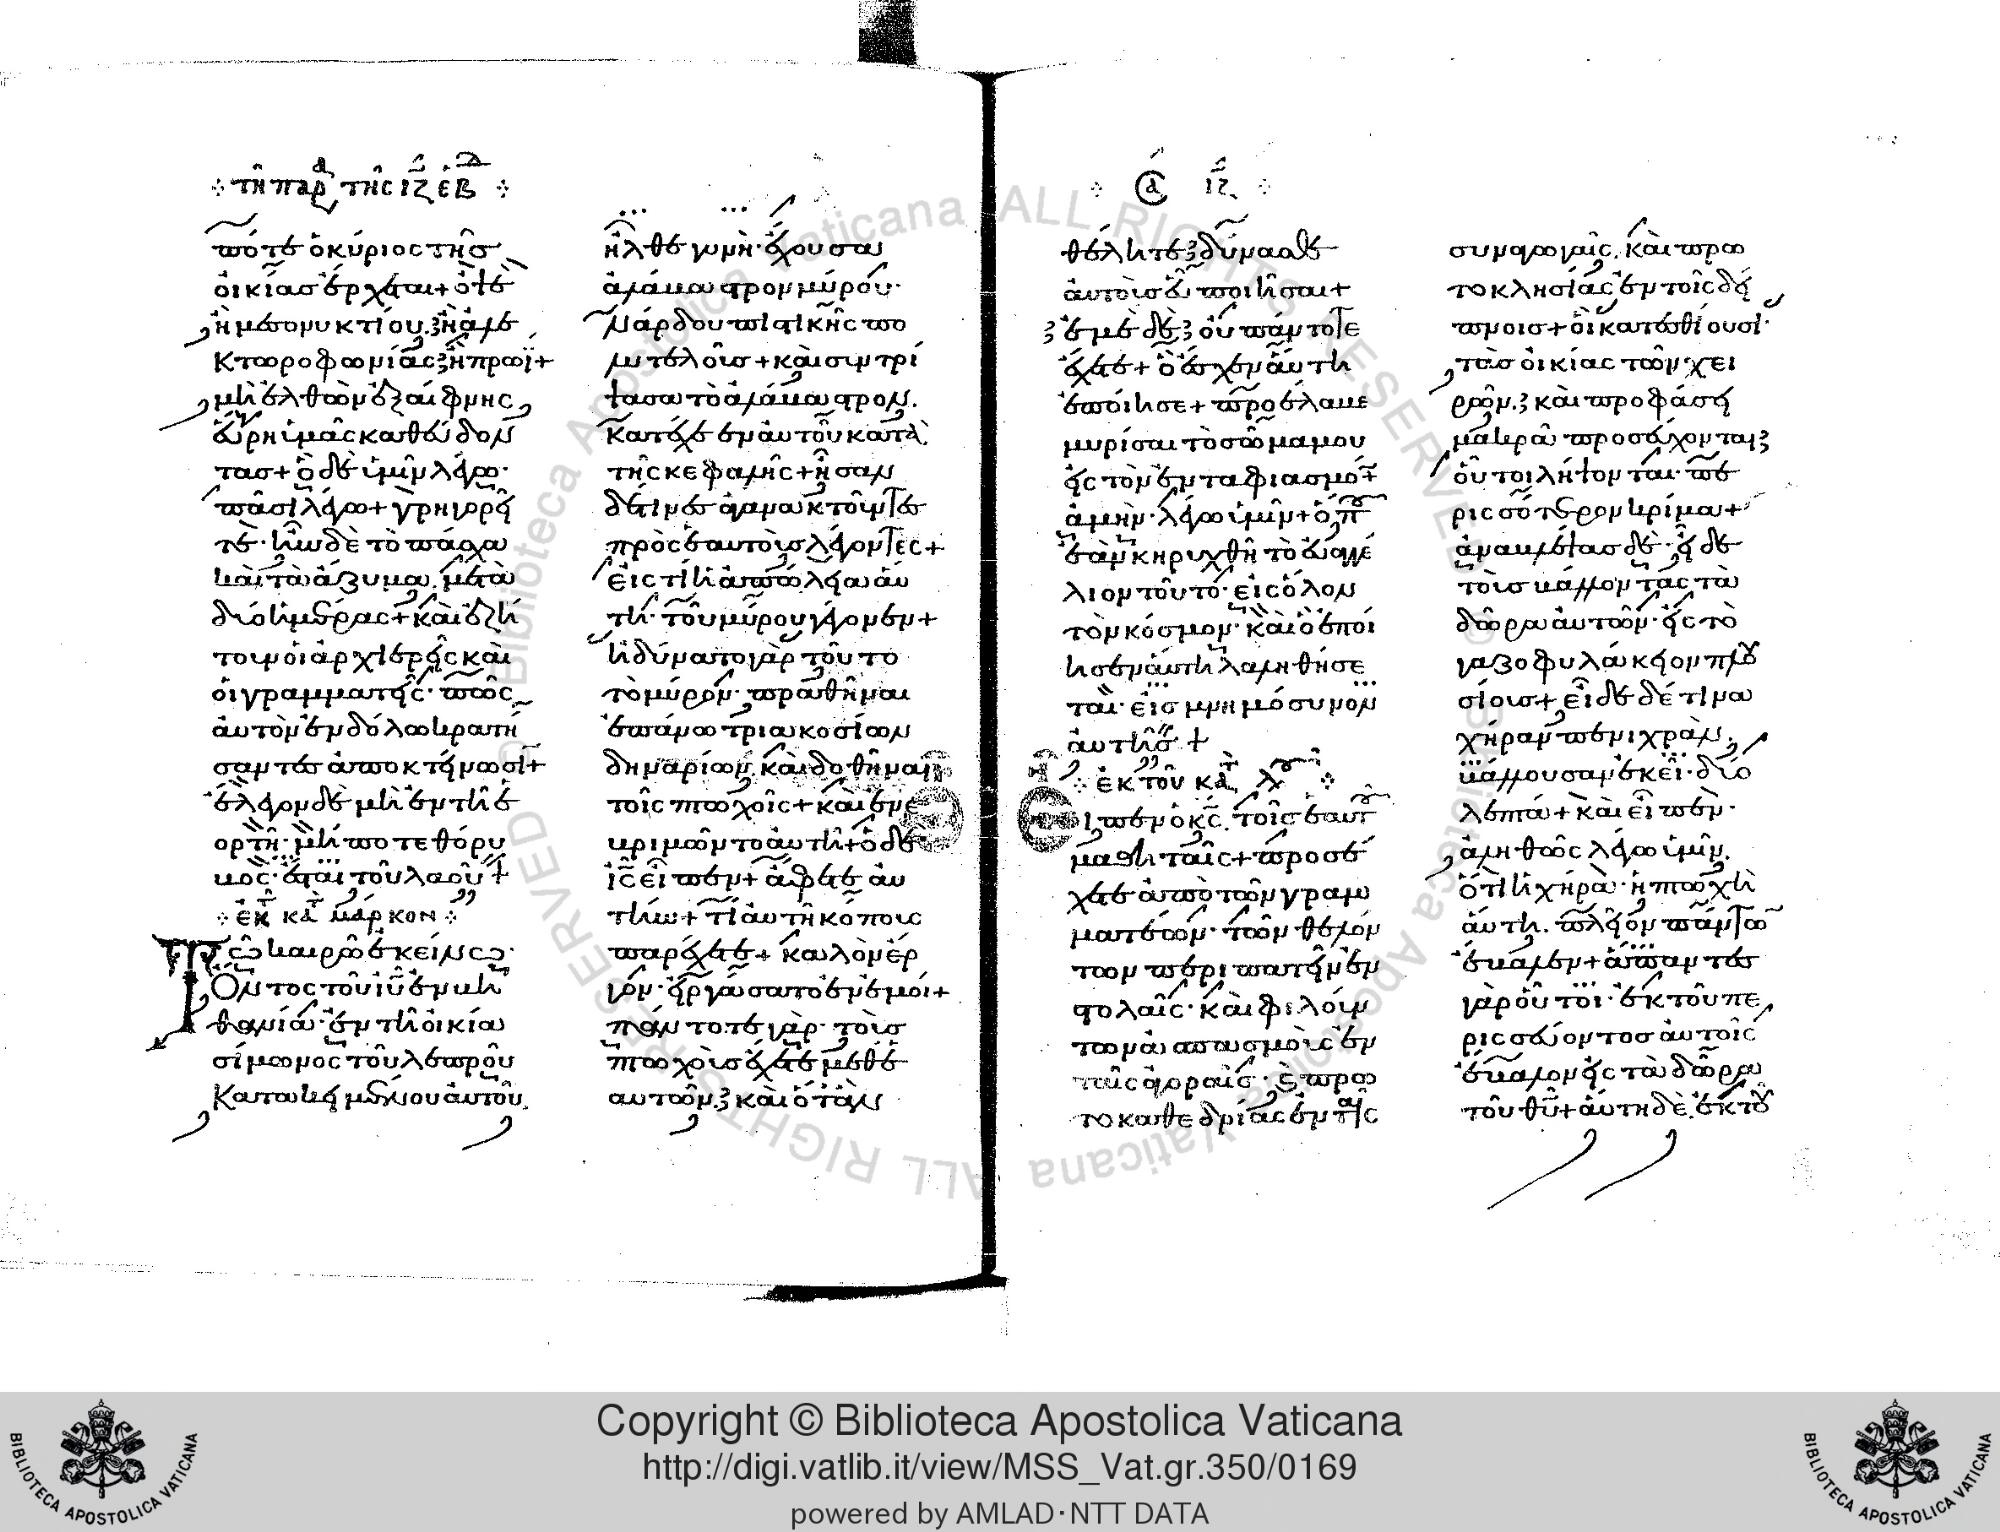 τῆ παρ τῆς ιζ ἑβδ
πότε ὁ κύριος τῆσ
οἰκίασ ἔρχεται + ὀψὲ
ἢ μεσονυκτίου. ἢ ἀλε
κτωροφωνίας ἢ πρωΐ +
μὴ ἐλθὼν ἐξαίφνης
εὕρη ὑμᾶς καθεύδον
τασ + ὃ δὲ ὑμῖν λέγω·
πᾶσι λέγω + γρηγορεῖ
τε· ἦν δὲ τὸ πάσχα
καὶ τὰ ἄζυμα. μετὰ
δύο ἡμέρας + καὶ ἐζή
τουν οἱ ἀρχιερεῖς καὶ
οἱ γραμματεῖς· πῶς
αὐτὸν ἐν δόλω κρατή
σαντες ἀποκτείνωσι +
ἔλεγον δὲ μὴ ἐν τῆ ἑ
ορτῆ· μήποτε θόρυ
βος· ἔσται τοῦ λαοῦ +
ἐκ τ κατ μάρκον
Τῶ καιρῶ ἐκείνω·
ὄντος τοῦ ἰῦ ἐν βη
θανία· ἐν τῆ οἰκία
σίμωνος τοῦ λεπροῦ
κατακειμένου αὐτοῦ.
ἦλθε γυνὴ· ἔχουσα
ἀλάβαστρον μύρου·
νάρδου πιστικῆς πο
λυτελοῦς + καὶ συντρί
ψασα τὸ ἀλάβαστρον.
κατέχεεν αὐτοῦ κατὰ
τῆς κεφαλῆς + ἦσαν
δέ τινες ἀγανακτοῦντες
πρὸς ἑαυτοὺς λέγοντες +
εἰς τί ἡ ἀπώλεια αὕ
τη· τοῦ μύρου γέγονεν +
ἠδύνατο γὰρ τοῦτο
τὸ μύρον· πραθῆναι
ἐπάνω τριακοσίων
δηναρίων. καὶ δοθῆναι
τοῖς πτωχοῖς + καὶ ἐνε
βριμῶντο αὐτῆ + ὁ δὲ
ἰς εἶπεν + ἄφετε αὐ
τήν + τί αὐτῆ κόπους
παρέχετε + καλὸν ἔρ
γον· εἰργάσατο ἐν ἐμοί +
πάντοτε γὰρ· τοὺσ
πτωχοὺσ ἔχετε μεθ ἑ
αυτῶν. καὶ ὅταν
ιζ
θέλητε δύνασθε
αὐτοὺσ εὖ ποιῆσαι +
ἐμὲ δὲ οὐ πάντοτε
ἔχετε + ὃ ἔσχεν αὕτη
ἐποίησε + προέλαβε
μυρίσαι τὸ σῶμα μου
εἰς τὸν ἐνταφιασμόν +
ἀμὴν· λέγω ὑμῖν + ὅπου
ἐὰν κηρυχθῆ τὸ εὐαγγέ
λιον τοῦτο· εἰς ὅλον
τὸν κόσμον· καὶ ὃ ἐποί
ησεν αὕτη λαληθήσε
ται· εἰσ μνημόσυνον
αὐτῆσ +
ἐκ τοῦ κατ λου
εἶπεν ὁ κς. τοῖς ἑαυτοῦ
μαθηταῖς + προσέ
χετε ἀπὸ τῶν γραμ
ματέων· τῶν θελόν
των περιπατεῖν ἐν
στολαῖς· καὶ φιλούν
των ἀσπασμοὺς ἐν
ταῖς ἀγοραῖς· καὶ πρω
τοκαθεδρίας ἐν ταῖς
συναγωγαῖς. καὶ πρω
τοκλησίας ἐν τοῖς δεί
πνοισ + οἳ κατεσθίουσι·
τὰσ οἰκίας τῶν χει
ρῶν. καὶ προφάσει
μακρὰ προσεύχονται
οὗτοι λήψονται· πε
ρισσότερον κρίμα +
ἀναβλέψας δὲ· εἶδε
τοὺσ βάλλοντας τὰ
δῶρα αὐτῶν· εἰς τὸ
γαζοφυλάκειον πλου
σίουσ + εἶδε δέ τινα
χήραν πενιχρὰν.
βάλλουσαν ἐκεῖ· δύο
λεπτά + καὶ εἶπεν·
ἀληθῶς λέγω ὑμῖν.
ὅτι ἡ χήρα· ἡ πτωχὴ
αὕτη. πλεῖον πάντων
ἔβαλεν + ἅπαντες
γὰρ οὗτοι· ἐκ τοῦ πε
ρισσεύοντοσ αὐτοῖς
ἔβαλον εἰς τὰ δῶρα
τοῦ θῦ + αὕτη δὲ. ἐκ τοῦ
© Biblioteca Apostolica Vaticana ALL RIGHTS RESERVED
© Biblioteca Apostolica Vaticana ALL RIGHTS RESERVED
Copyright © Biblioteca Apostolica Vaticana
http://digi.vatlib.it/view/MSS_Vat.gr.350/0169
powered by AMLAD·NTT DATA
BIBLIOTECA APOSTOLICA VATICANA
BIBLIOTECA APOSTOLICA VATICANA